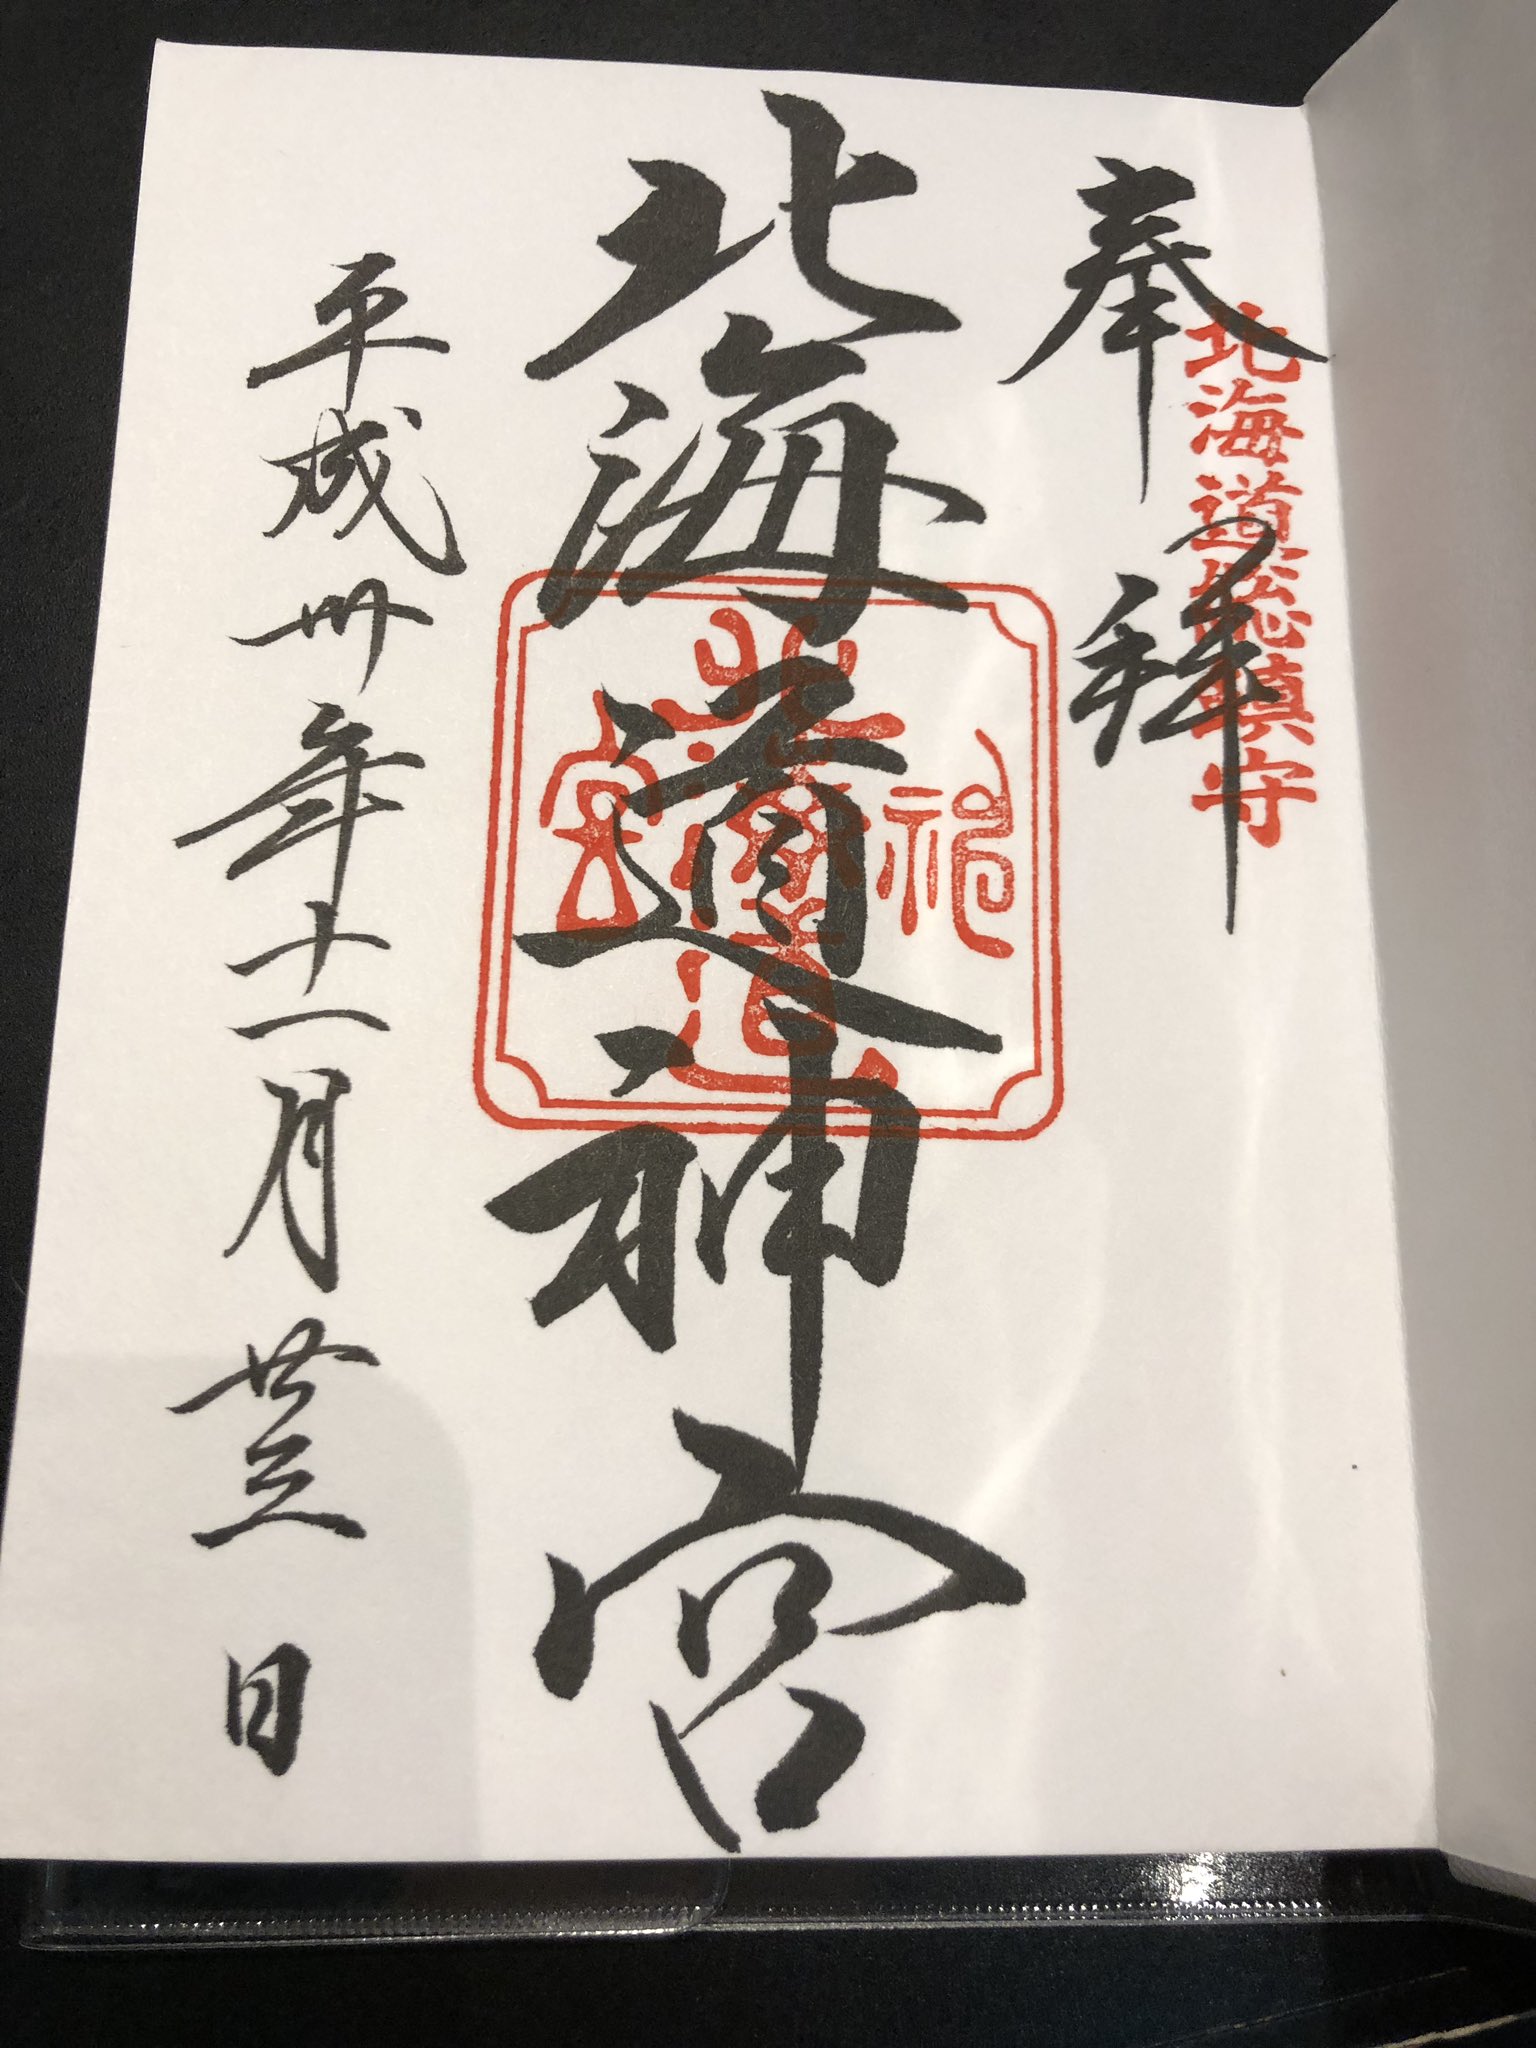 奉拝
北海道総鎮守
北海道神宮
平成卅年十一月廿三日